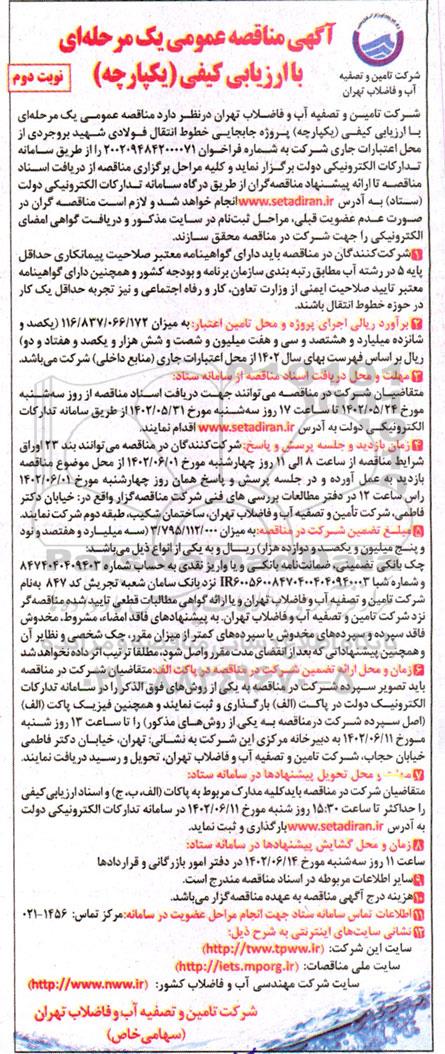 آگهی مناقصه عمومی یک مرحله‌ای
با ارزیابی کیفی (یکپارچه)
نوبت دوم
شرکت تامین و تصفیه
آب و فاضلاب تهران
شرکت تامیـن و تصفیه آب و فاضـلاب تهران درنظر دارد مناقصه عمومـی یک مرحله‌ای
با ارزیابی کیفـی (یکپارچه) پـروژه جابجایی خطوط انتقال فولادی شـهید بروجردی از
محل اعتبارات جاری شرکت به شماره فراخوان ۲۰۰۲۰۹۴۸۴۲۰۰۰۰۷۱ را از طریق سامانه
تدارکات الکترونیکی دولت برگزار نماید و کلیه مراحل برگزاری مناقصه از دریافت اسناد
مناقصـه تا ارائه پیشـنهاد مناقصه‌گران از طریق درگاه سامانه تدارکات الکترونیکی دولت
(ستاد) به آدرس www.setadiran.ir انجام خواهد شـد و لازم اسـت مناقصـه گران در
صورت عدم عضویت قبلی، مراحـل ثبت‌نام در سایت مذکـور و دریافـت گواهی امضای
الکترونیکی را جهت شرکت در مناقصه محقق سازند.
۱ شرکت‌کنندگان در مناقصه باید دارای گواهینامه معتبر صلاحیت پیمانکاری حداقل
پایه ۵ در رشته آب مطابق رتبه بندی سازمان برنامه و بودجه کشور و همچنین دارای گواهینامه
معتبر تایید صلاحیت ایمنی از وزارت تعاون، کار و رفاه اجتماعی و نیز تجربه حداقل یک کار
در حوزه خطوط انتقال باشند.
۲ برآورد ریالی اجرای پروژه و محل تامین اعتبار: به میزان ۱۱۶/۸۳۷/۰۶۶/۱۷۲ (یکصد و
شانزده میلیارد و هشتصد و سی و هفت میلیون و شصت و شش هزار و یکصد و هفتاد و دو)
ریال بر اساس فهرست بهای سال ۱۴۰۲ از محل اعتبارات جاری (منابع داخلی) شرکت می‌باشد.
۳ مهلت و محل دریافت اسناد مناقصه از سامانه ستاد:
متقاضیـان شـرکت در مناقصـه می‌تواننـد جهـت دریافـت اسناد مناقصه از روز سـه‌شنبه
مورخ ۱۴۰۲/۰۵/۲۴ تـا ساعت ۱۷ روز سـه‌شنبـه مورخ ۱۴۰۲/۰۵/۳۱ از طریق سامانه تدارکات
الکترونیکـی دولت به آدرس www.setadiran.ir اقدام نمایند.
۴ زمان بازدید و جلسه پرسش و پاسخ: شرکت‌کنندگان در مناقصه می‌توانند بند ۲۳ اوراق
شرایط مناقصه از ساعت ۸ الی ۱۱ روز چهارشنبه مورخ ۱۴۰۲/۰۶/۰۱ از محل موضوع مناقصه
بازدید به عمل آورده و در جلسه پرسش و پاسخ همان روز چهارشنبه مورخ ۱۴۰۲/۰۶/۰۱
راس ساعت ۱۲ در دفتر مطالعات بررسی های فنی شرکت مناقصه‌گزار واقع در: خیابان دکتر
فاطمی، شرکت تأمین و تصفیه آب و فاضلاب تهران، ساختمان شکیب، طبقه دوم شرکت نمایند.
۵ مبلـغ تضمیـن شـرکت در مناقصـه: به میزان ۳/۷۹۵/۱۱۲/۰۰۰ (سه میلیـارد و هفتصد و نود
و پنج میلیون و یکصـد و دوازده هزار) ریـال و به یکی از انواع ذیل می‌باشد:
چک بانکی تضمینی، ضمانت‌نامه بانکـی و یا واریز نقدی به حساب شماره ۸۴۷۴۰۴۰۴۰۹۴۰۳
و شماره شبا IR۶۰۰۵۶۰۰۸۴۷۰۰۴۰۴۰۴۰۹۴۰۰۳ نزد بانک سامان شعبه تجریش کد ۸۴۷ به‌نام
شرکت تامین و تصفیه آب و فاضلاب تهران و یا ارائه گواهی مطالبات قطعی تایید شده مناقصه‌گر
نزد شرکت تامین و تصفیه آب و فاضلاب تهران. به پیشنهادهای فاقد امضاء، مشروط، مخدوش،
فاقد سپرده، سپرده‌های مخدوش یا سپرده‌های کمتر از میزان مقرر، چک شخصی و نظایر آن
و همچنین پیشنهاداتی که بعد از انقضای مدت مقرر واصل شود، مطلقا ترتیب اثر داده نخواهد شد
۶ زمان و محل ارائه تضمین شرکت در مناقصه در پاکت الف: متقاضیان شرکت در مناقصه
باید تصویر سپرده شرکت در مناقصه به یکی از روش‌های فوق الذکر را در سامانه تدارکات
الکترونیـک دولت در پاکـت (الف) بارگـذاری و ثبت نمایند و همچنین فیزیـک پاکت (الف)
(اصل سـپرده شرکت در مناقصه بـه یکی از روش‌های مذکور) را تا ساعت ۱۳ روز شـنبه
مـورخ ۱۴۰۲/۰۶/۱۱ به دبیرخانه مرکزی این شرکت به نشانی: تهران، خیابـان دکتر فاطمی
خیابان حجاب، شرکت تامین و تصفیه آب و فاضلاب تهران، تحویل و رسید دریافت نمایند.
۷ مهلت و محل تحویل پیشنهادها در سامانه ستاد:
متقاضیان شرکت در مناقصه باید کلیه مدارک مربوط به پاکات (الف، ب، ج) و اسناد ارزیابی کیفی
را حداکثر تا ساعت ۱۵:۳۰ روز شنبه مورخ ۱۴۰۲/۰۶/۱۱ در سامانه تدارکات الکترونیکی دولت
به آدرس www.setadiran.ir بارگذاری و ثبت نماید.
۸ زمان و محل گشایش پیشنهادها در سامانه ستاد:
ساعت ۱۱ روز سه‌شنبه مورخ ۱۴۰۲/۰۶/۱۴ در دفتر امور بازرگانی و قراردادها
۹ سایر اطلاعات مربوطه در اسناد مناقصه مندرج است.
۱۰ هزینه درج آگهی مناقصه به عهده مناقصه‌گزار می‌باشد.
۱۱ اطلاعات تماس سامانه ستاد جهت انجام مراحل عضویت در سامانه: مرکز تماس: ۱۴۵۶-۰۲۱
۱۲ نشانی سایت‌های اینترنتی به شرح ذیل:
سایت این شرکت: (http://tww.tpww.ir)
سایت ملی مناقصات: (http://iets.mporg.ir)
سایت شرکت مهندسی آب و فاضلاب کشور: (http://www.nww.ir)
شرکت تامین و تصفیه آب و فاضلاب تهران
(سهامی خاص)